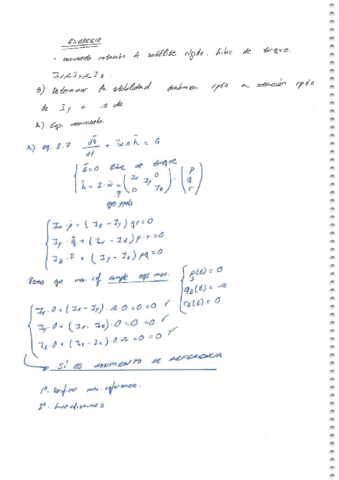 EJERCICIO
• movimiento rotación de satélite rígido. Libre de torque.
Ix < Iy < Iz.
B) Determinar la estabilidad dinámica rpto a rotación rpto
de Iy a Ω de
A) Eqs. movimiento.
A) eq. 2.7 dh̄/dt + w̄ ∧ h̄ = G
Ḡ=0 libre de torque
h̄ = I·w̄ = (Ix 0 Iy 0 Iz) · (p q r)
ejes ppales
Ix · ṗ + (Iz - Iy) qr = 0
Iy · q̇ + (Ix - Iz) p·r = 0
Iz · ṙ + (Iy - Ix) pq = 0
Vemos que mov. ref cumple eqs mov.
ps(t) = 0
qs(t) = Ω
rs(t) = 0
Ix · 0 + (Iz - Iy) · Ω · 0 = 0 ✓
Iy · 0 + (Ix - Iz) · 0 · 0 = 0 ✓
Iz · 0 + (Iy - Ix) · 0 · Ω = 0 ✓
SÍ ES MOVIMIENTO DE REFERENCIA
1º. Verificar mov. referencia.
2º. Linealizamos